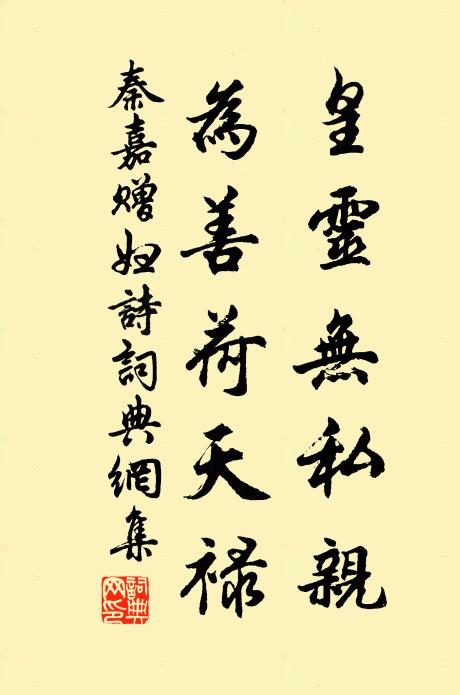 皇靈無私親
為善荷天禄
秦嘉贈婦詩詞典網集
詞典网印